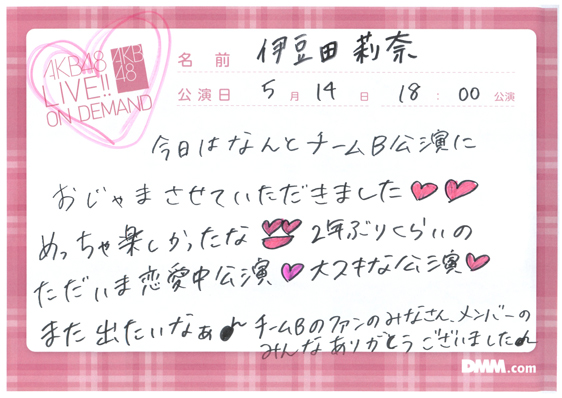 AKB48
LIVE!!
ON DEMAND
AKB
48
名前 伊豆田莉奈
公演日 5月14日 18:00公演
今日はなんとチームB公演に
おじゃまさせていただきました
めっちゃ楽しかったな 2年ぶりくらいの
ただいま恋愛中公演 大スキな公演
また出たいなぁ♪ チームBのファンのみなさん、メンバーの
みんなありがとうございました♪
DMM.com